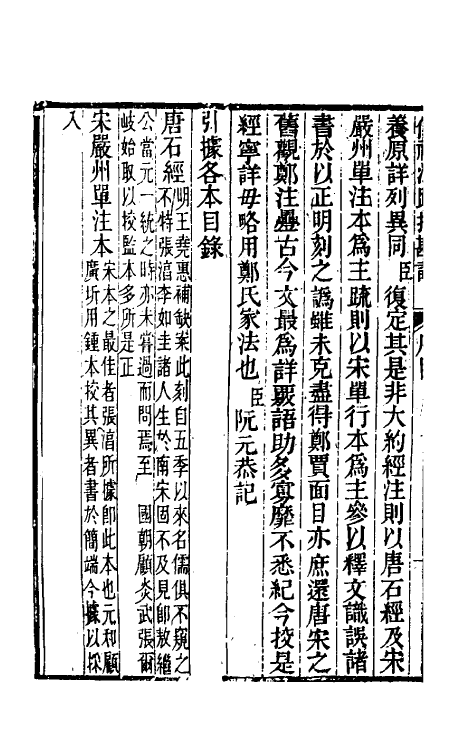 儀禮注疏挍勘記
養原詳列異同臣復定其是非大約經注則以唐石經及宋
嚴州單注本爲主疏則以宋單行本爲主參以釋文識誤諸
書於以正明刻之譌雖未克盡得鄭賈面目亦庶還唐宋之
舊觀鄭注疊古今文最爲詳覈語助多寡靡不悉紀今挍是
經寧詳毋略用鄭氏家法也臣阮元恭記
引據各本目錄
唐石經明王堯惠補缺案此刻自五季以來名儒俱不窺之
不特張淳李如圭諸人生於南宋固不及見卽敖繼
公當元一統之時亦未嘗過而問焉至 國朝顧炎武張爾
岐始取以挍監本多所是正
宋嚴州單注本宋本之最佳者張淳所據卽此本也元和顧
廣圻用鍾本挍其異者書於簡端今據以採
入